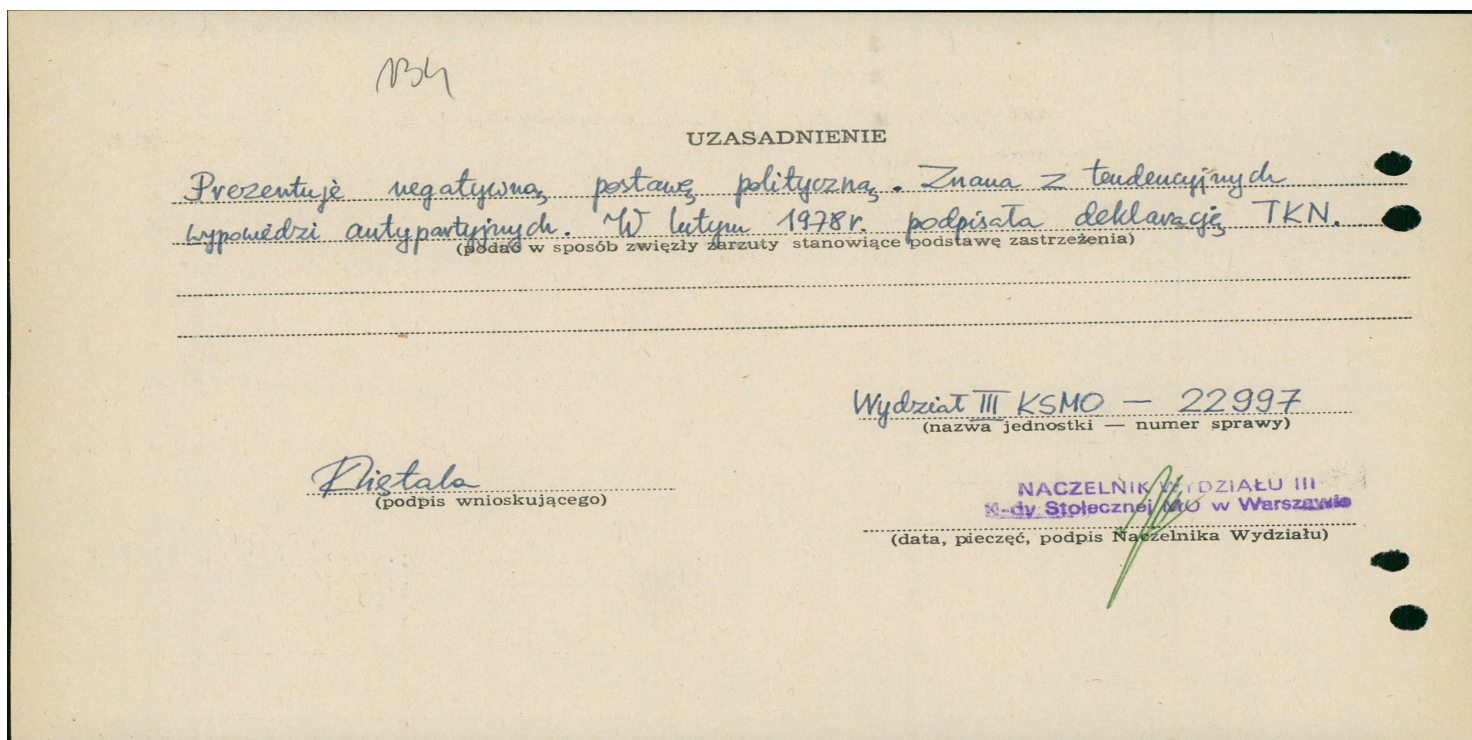 134
UZASADNIENIE
Prezentuje negatywną postawę polityczną. Znana z tendencyjnych
wypowiedzi antypartyjnych. W lutym 1978r. podpisała deklarację TKN.
(podać w sposób zwięzły zarzuty stanowiące podstawę zastrzeżenia)
Wydział III KSMO — 22997
(nazwa jednostki — numer sprawy)
(podpis wnioskującego)
NACZELNIK WYDZIAŁU III
K-dy Stołecznej MO w Warszawie
(data, pieczęć, podpis Naczelnika Wydziału)